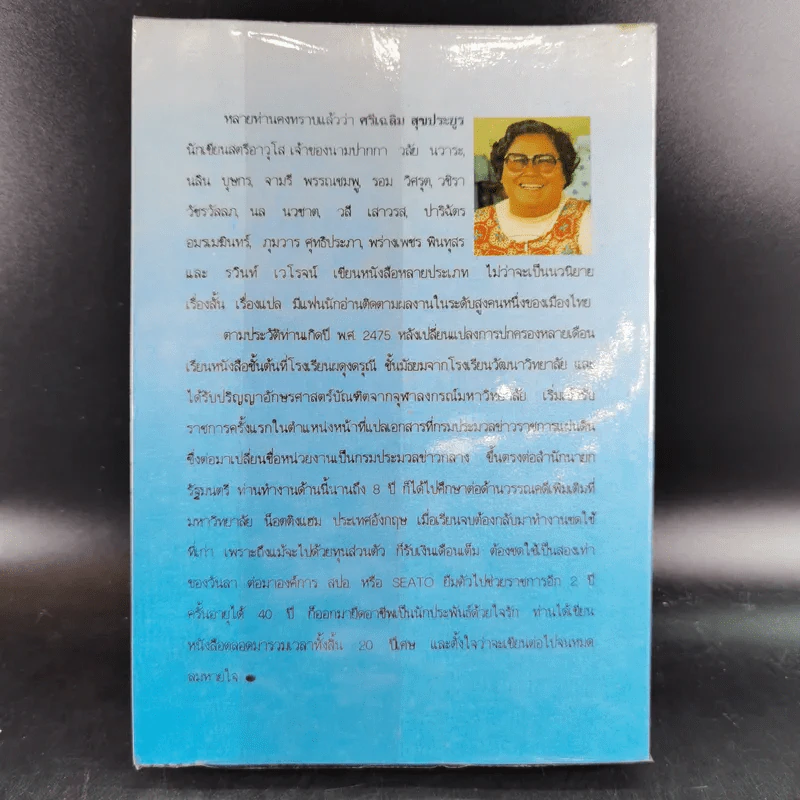 หลายท่านคงทราบแล้วว่า ศรีเฉลิม สุขประยูร
นักเขียนสตรีอาวุโส เจ้าของนามปากกา วลัย นวาระ,
นลิน บุษกร, จามรี พรรณชมพู, รอม วิศรุต, วชิรา
วัชรวัลลภ, นล นวชาต, วลี เสาวรส, ปาริฉัตร
อมรเมฆินทร์, ภุมวาร ศุทธิประภา, พร่างเพชร พินทุสร
และ รวินท์ เวโรจน์ เขียนหนังสือหลายประเภท ไม่ว่าจะเป็นนวนิยาย
เรื่องสั้น เรื่องแปล มีแฟนนักอ่านติดตามผลงานในระดับสูงคนหนึ่งของเมืองไทย
ตามประวัติท่านเกิดปี พ.ศ. 2475 หลังเปลี่ยนแปลงการปกครองหลายเดือน
เรียนหนังสือชั้นต้นที่โรงเรียนผดุงดรุณี ชั้นมัธยมจากโรงเรียนวัฒนาวิทยาลัย และ
ได้รับปริญญาอักษรศาสตร์บัณฑิตจากจุฬาลงกรณ์มหาวิทยาลัย เริ่มเข้ารับ
ราชการครั้งแรกในตำแหน่งหน้าที่แปลเอกสารที่กรมประมวลข่าวราชการแผ่นดิน
ซึ่งต่อมาเปลี่ยนชื่อหน่วยงานเป็นกรมประมวลข่าวกลาง ขึ้นตรงต่อสำนักนายก
รัฐมนตรี ท่านทำงานด้านนี้นานถึง 8 ปี ก็ได้ไปศึกษาต่อด้านวรรณคดีเพิ่มเติมที่
มหาวิทยาลัย น็อตติงแฮม ประเทศอังกฤษ เมื่อเรียนจบต้องกลับมาทำงานชดใช้
ที่เก่า เพราะถึงแม้จะไปด้วยทุนส่วนตัว ก็รับเงินเดือนเต็ม ต้องชดใช้เป็นสองเท่า
ของวันลา ต่อมาองค์การ สปอ หรือ SEATO ยืมตัวไปช่วยราชการอีก 2 ปี
ครั้นอายุได้ 40 ปี ก็ออกมายึดอาชีพเป็นนักประพันธ์ด้วยใจรัก ท่านได้เขียน
หนังสือตลอดมารวมเวลาทั้งสิ้น 20 ปีเศษ และตั้งใจว่าจะเขียนต่อไปจนหมด
ลมหายใจ ●